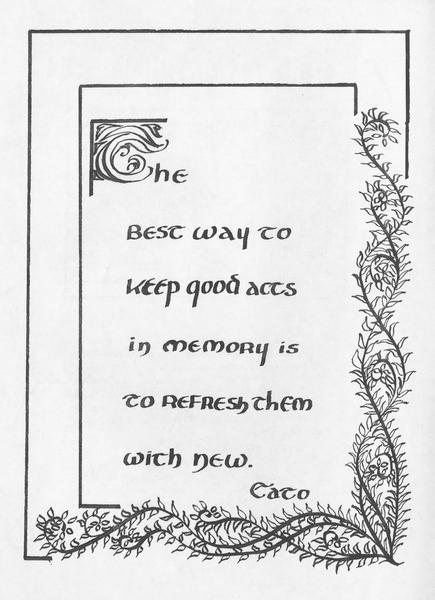 The
Best way to
keep good acts
in memory is
to refresh them
with new.
Cato